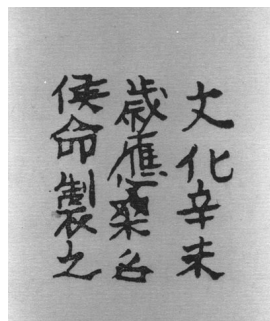 文化辛未
歳應桑名
侯命製之